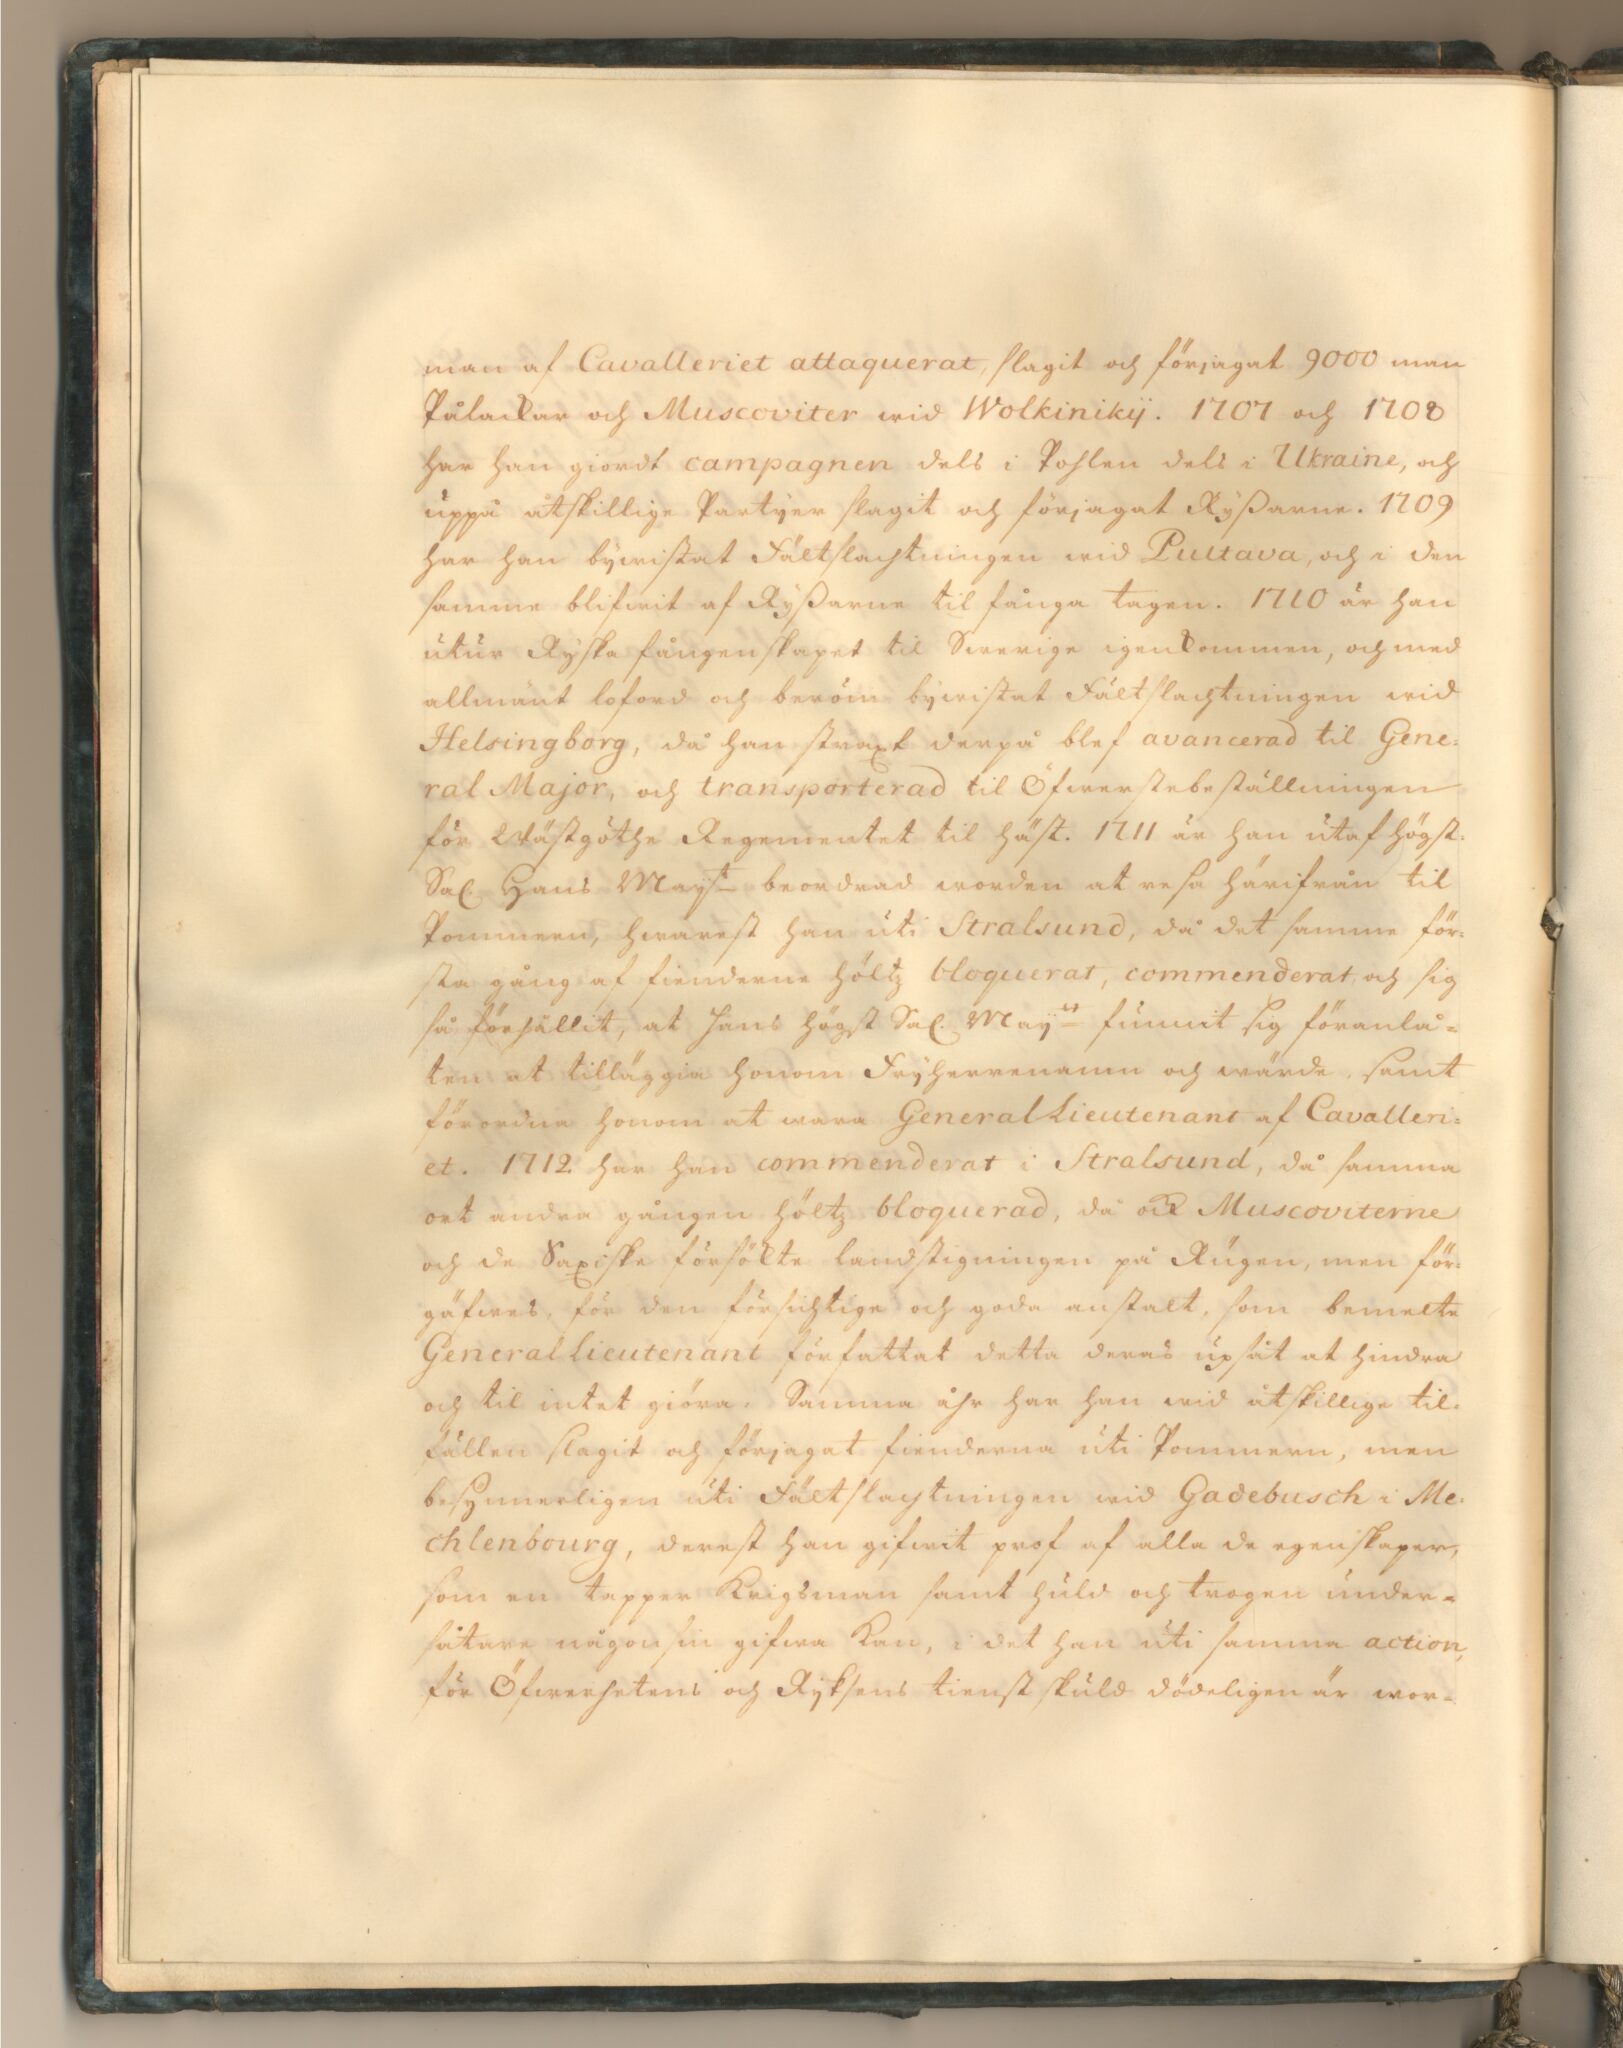 man af Cavalleriet attaquerat, slagit och förjagat 9000 man
Pålackar och Muscoviter wid Wolkinikij. 1707 och 1708
har han giordt campagnen dels i Pohlen dels i Ukraine, och
uppå åtskillige Partyer slagit och förjagat Ryßarne. 1709
har han bywistat Fältslachtningen wid Pultava, och i den
samme blifwit af Ryßarne til fånga tagen. 1710 är han
utur Ryska fångenskapet til Swerige igenkommen, och med
allmänt loford och beröm bywistat Fältslachtningen wid
Helsingborg, då han straxt derpå blef avancerad til Gene=
ral Major, och transporterad til Öfwerstebeställningen
för Wästgöthe Regementet til häst. 1711 är han utaf högst=
Sal. Hans Mayst beordrad worden at resa härifrån til
Pommern, hwarest han uti Stralsund, då det samme för=
sta gång af fienderne höltz bloquerat, commenderat och sig
så förhållit, at Hans högst Sal. Mayst funnit sig föranlå=
ten at tilläggia honom Fryherrenamn och wärde, samt
förordna honom at wara General Lieutenant af Cavalleri=
et. 1712 har han commenderat i Stralsund, då samma
ort andra gången höltz bloquerad, då ock Muscoviterne
och de Saxiske försökte landstigningen på Rügen, men för=
gäfwes, för den försichtige och goda anstalt, som bemelte
General Lieutenant författat detta deras upsåt at hindra
och til intet giöra. Samma åhr har han wid åtskillige til=
fällen slagit och förjagat fienderna uti Pommern, men
besynnerligen uti Fältslachtningen wid Gadebusch i Me=
chlenbourg, derest han gifwit prof af alla de egenskaper,
som en tapper Krigsman samt huld och trogen under=
såtare någonsin gifwa kan, i det han uti samma action,
för Öfwerhetens och Ryksens tienst skuld dödeligen är wor=